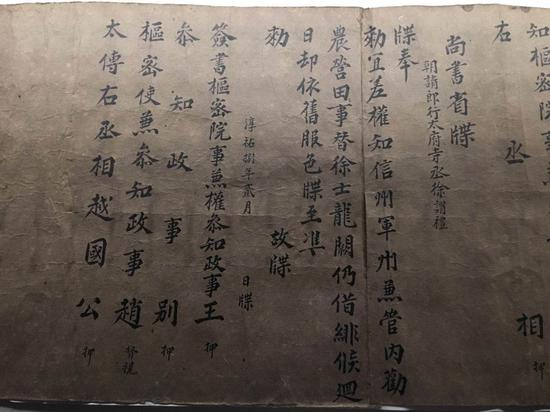 知樞密院事兼
右丞相 押
尚書省牒
朝請郎行太府寺丞徐謂禮
牒奉
勑宜差權知信州軍州兼管內勸
農營田事替徐士龍闕仍借緋候迴
日却依舊服色牒至準
勑 故牒
淳祐捌年貳月 日牒
簽書樞密院事兼權叅知政事王 押
叅知政事別 押
樞密使兼叅知政事趙 督視
太傅右丞相越國公 押